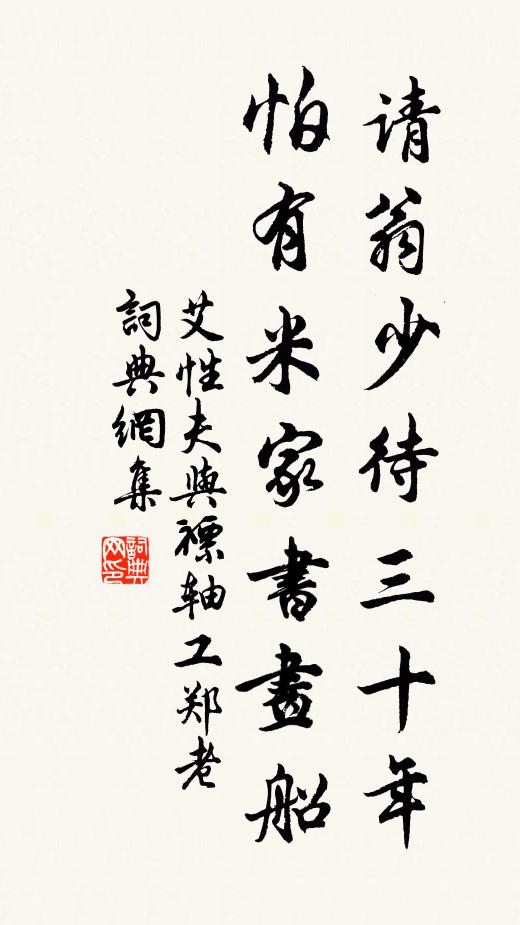 请翁少待三十年
怕有米家書畫船
艾性夫與褾軸工郑老
詞典網集
詞典网印